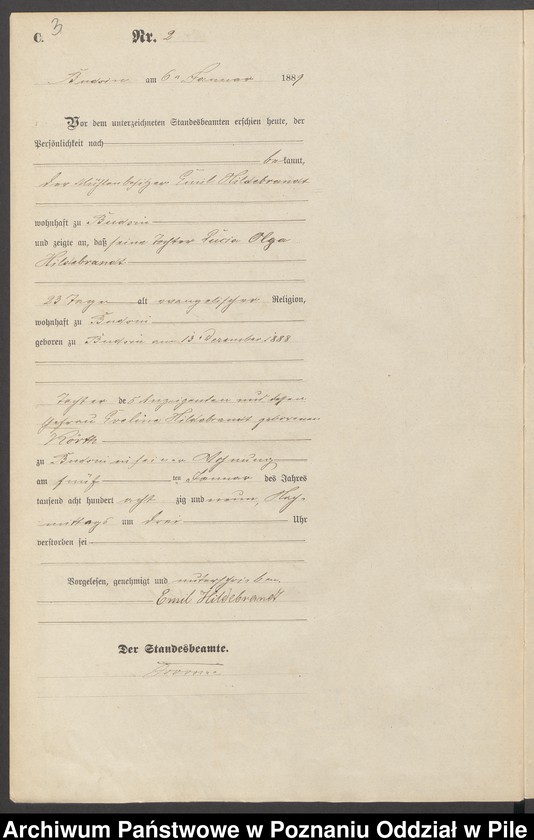 3
C.
Nr. 2
am 6ten Januar 1889
Vor dem unterzeichneten Standesbeamten erschien heute, der
Persönlichkeit nach
bekannt,
der Mühlenbesitzer Emil Hildebrandt
wohnhaft zu
und zeigte an, daß seine Tochter Lucia Olga
Hildebrandt
23 Tage alt evangelischer Religion,
wohnhaft zu
geboren zu am 13. Dezember 1888
Tochter des Anzeigenden und dessen
Ehefrau Eveline Hildebrandt geborenen
zu in seiner Wohnung
am fünften Januar des Jahres
tausend acht hundert achtzig und neun, Nach-
mittags um drei Uhr
verstorben sei
Vorgelesen, genehmigt und unterschrieben
Emil Hildebrandt
Der Standesbeamte.
Archiwum Państwowe w Poznaniu Oddział w Pile